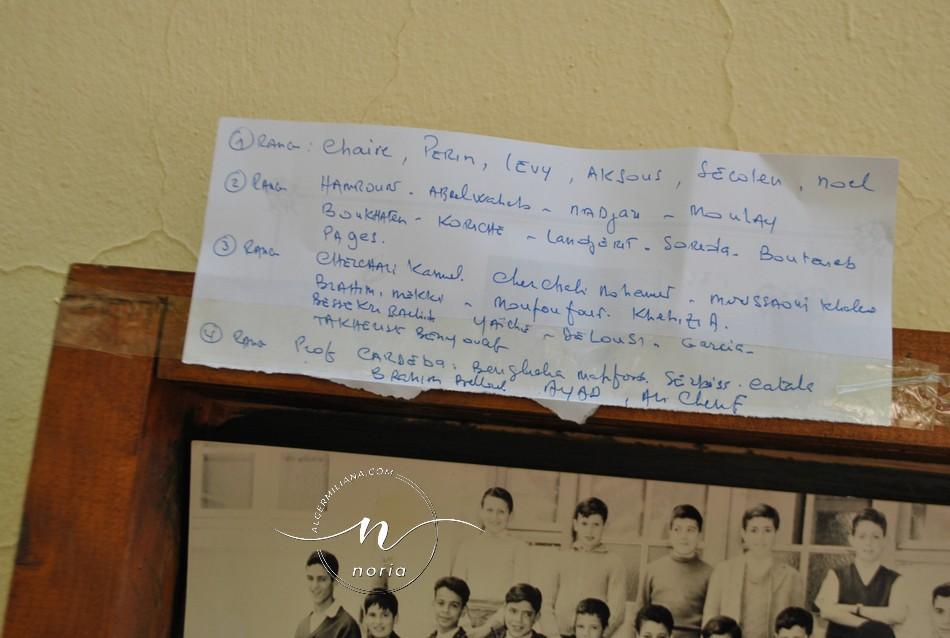 ① RANG : Chaire, PERIN, LEVY, AKSOUS, SECOLEN, NOEL
② RANG HAMROUN - Abdelwahab - MADJAR - MOULAY
BOUKHATEM - KORICHE - Landjerit - Serida - Boutaseb
PAGES.
③ RANG CHERCHALI Kamel. Cherchali Mohamed - MOUSSAOUI
BRAHIM, Mekki - Moufoufour. Khelifi A.
BEHEKRI Rachid YAICHE - DELOUSI - Garcia -
TAKHEUST Benyoucef
④ RANG Prof CARDEBA. Bengheha Mahfoud
BRAHIM AYAD, Ali Cherif
ALGERMILIANA.COM
n
noria